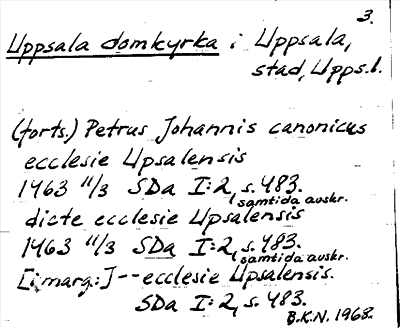 3.
Uppsala domkyrka i Uppsala,
stad, Upps.l.
(forts.) Petrus Johannis canonicus
ecclesie Upsalensis
1463 11/3 SDa I:2, s. 483.
samtida avskr.
dicte ecclesie Upsalensis
1463 11/3 SDa I:2, s. 483.
samtida avskr.
[i marg:] -- ecclesie Upsalensis.
SDa I:2, s. 483.
B.K.N. 1968.